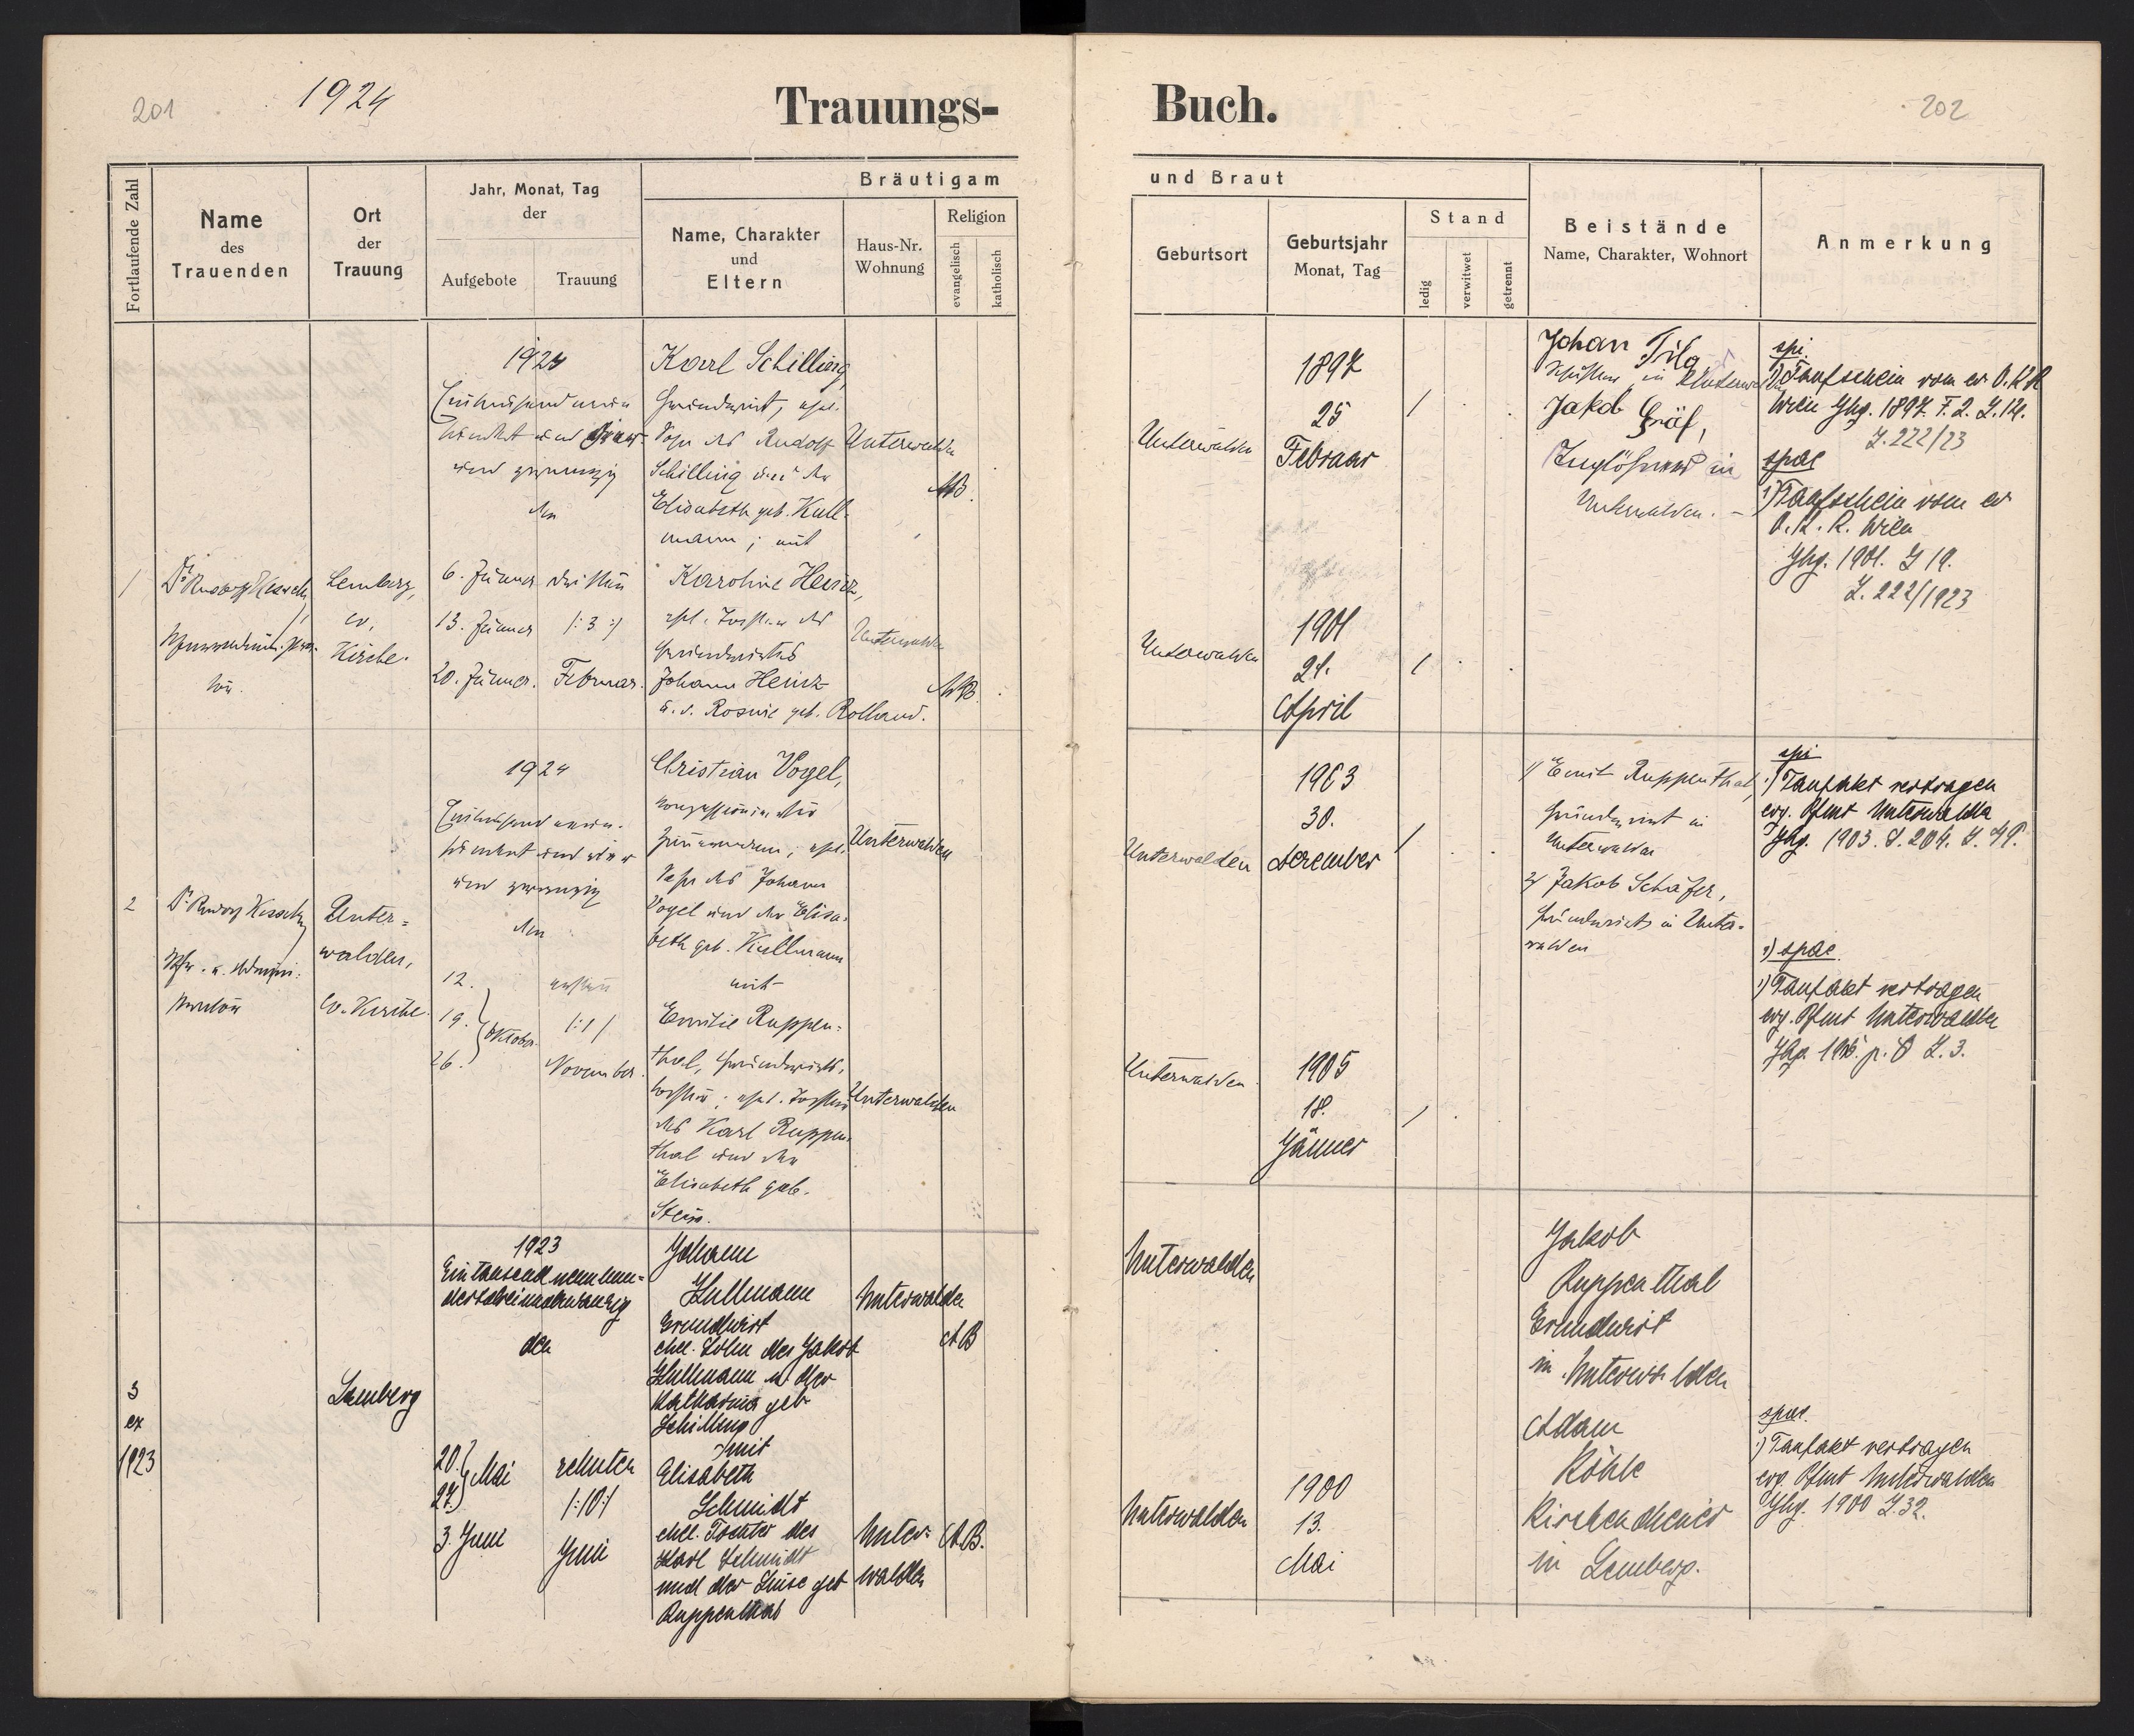 201
1924
Trauungs-
Buch.
202
Fortlaufende Zahl
Name
des
Trauenden
Ort
der
Trauung
Jahr, Monat, Tag
der
Aufgebote
Trauung
Bräutigam
Name, Charakter
und
Eltern
Haus-Nr.
Wohnung
Religion
evangelisch
katholisch
und Braut
Geburtsort
Geburtsjahr
Monat, Tag
Stand
ledig
verwitwet
getrennt
Beistände
Name, Charakter, Wohnort
Anmerkung
1
Dr Rudolf Kesselring
Lemberg,
ev.
Kirche.
1924
und zwanzig
den
6. Jänner
13. Jänner
20. Jänner.
dritten
/:3:/
Februar.
Karl Schilling,
Grundwirt, ehel.
Sohn des Rudolf
Schilling und der
Elisabeth geb. Kull-
mann; mit
Karoline Heinz,
ehel. Tochter des
Grundwirtes
Johann Heinz
u. d. Rosine geb. Rolland.
Unterwalden
AB.
Unterwalden
AB.
Unterwalden
1897
25
Februar
/
Unterwalden
1901
21.
April
/
Johan
in Unterwalden
Jakob Gräf,
in
Unterwalden. –
spi
1) Taufschein vom ev O.K.R
Wien Jhg. 1897. F. 2. Z. 14.
Z. 222/23
spae
1) Taufschein vom ev
O.K.R. Wien
Jhg. 1901. Z 19.
Z. 222/1923
2
Dr Rudolf Kesselring
Pfr. u. Admini-
strator
Unter=
walden,
Ev. Kirche.
1924
und zwanzig
den
12.
19.
26.
Oktober
ersten
/:1:/
November.
Christian Vogel,
ehel.
Sohn des Johann
Vogel und der Elisa-
beth geb. Kullmann
mit
Emilie Ruppen-
thal, Grundwirts-
tochter; ehel. Tochter
des Karl Ruppen-
thal und der
Elisabeth geb.
Unterwalden
Unterwalden
Unterwalden
1903
30.
Dezember
/
Unterwalden
1905
18.
Jänner
/
1/ Ernst Ruppenthal,
Grundwirt in
Unterwalden
2/ Jakob Schäfer,
Grundwirt in Unter-
walden
spi
1) Taufakt vertragen
evg. Pfmt Unterwalden
Jhg. 1903. S. 204. Z. 49.
2) spae.
1) Taufakt vertragen
evg. Pfmt Unterwalden
Jhg. 1905. p. 8 Z. 3.
3
ex
1923
Lemberg
1923
Eintausendneunhun=
dertdreiundzwanzig
den
20.
27.
Mai
3. Juni
zehnten
/:10:/
Juni
Johann
Kullmann
Grundwirt
ehel. Sohn des Jakob
Kullmann u der
Katharina geb
Schilling
mit
Elisabeth
Schmidt
ehel. Tochter des
Karl Schmidt
und der Luise geb
Ruppenthal
Unterwalden
AB
Unter-
walden
AB.
Unterwalden
Unterwalden
1900
13.
Mai
Jakob
Ruppenthal
Grundwirt
in Unterwalden
Adam
Köhle
Kirchendiener
in Lemberg.
spae.
1) Taufakt vertragen
evg. Pfmt Unterwalden
Jhg. 1900 Z. 32.